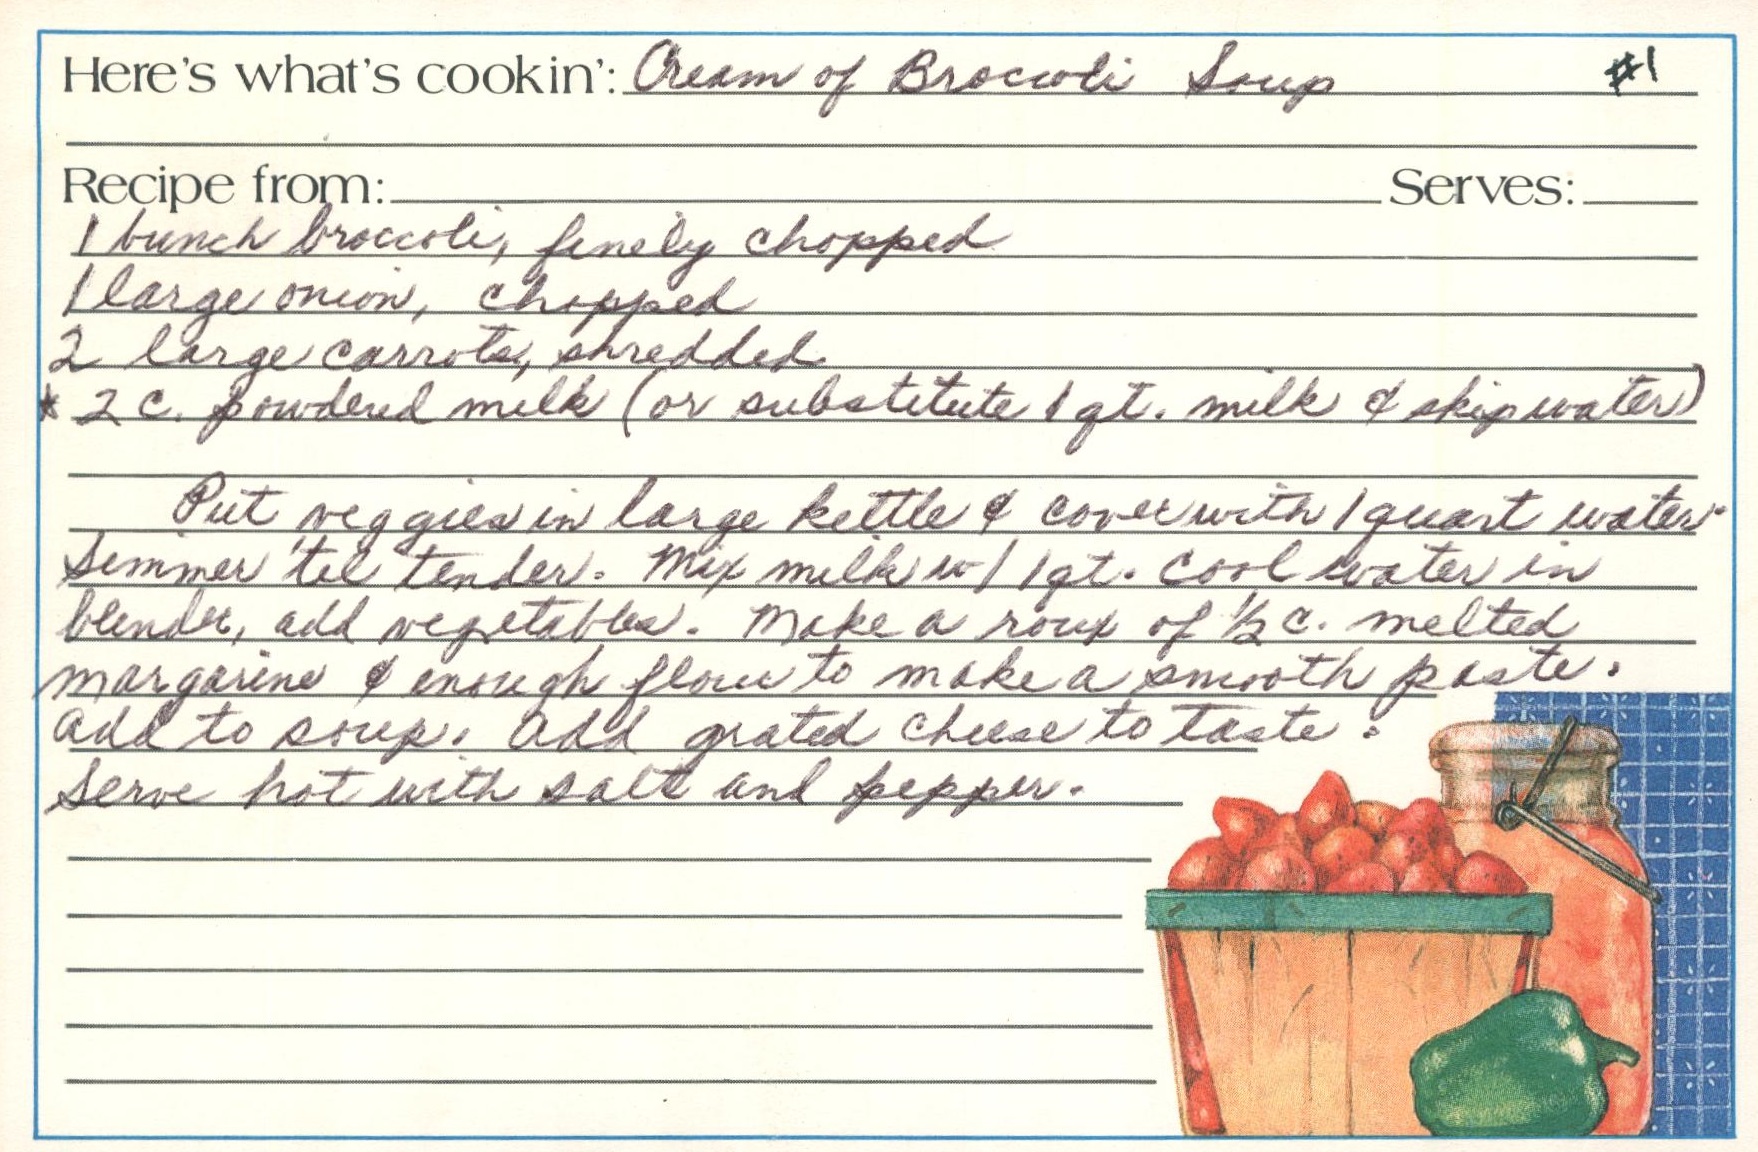 Here's what's cookin': Cream of Broccoli Soup #1
Recipe from: Serves:
1 bunch broccoli, finely chopped
1 large onion, chopped
2 large carrots, shredded
* 2 c. powdered milk (or substitute 1 qt. milk & skip water)
Put veggies in large kettle & cover with 1 quart water.
Simmer 'til tender. Mix milk w/ 1 qt. cool water in
blender, add vegetables. Make a roux of ½ c. melted
margarine & enough flour to make a smooth paste.
Add to soup. Add grated cheese to taste.
Serve hot with salt and pepper.